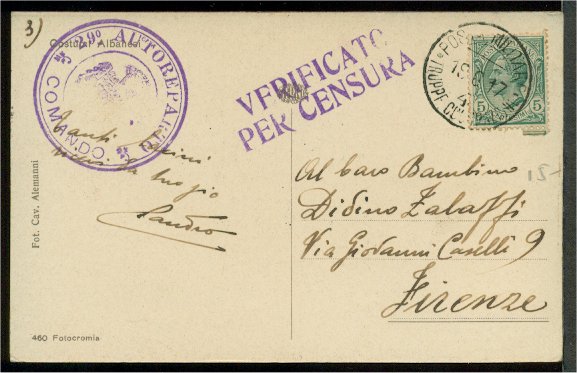 3)
Costumi Albanesi
29º AUTOREPARTO
COMANDO
VERIFICATO
PER CENSURA
POSTA MILITARE
TRUPPE
17
5 5
Tanti
Sandro
15-
Al caro Bambino
Didino Zalaffi
Via Giovanni Caselli 9
Firenze
Fot. Cav. Alemanni
460 Fotocromia